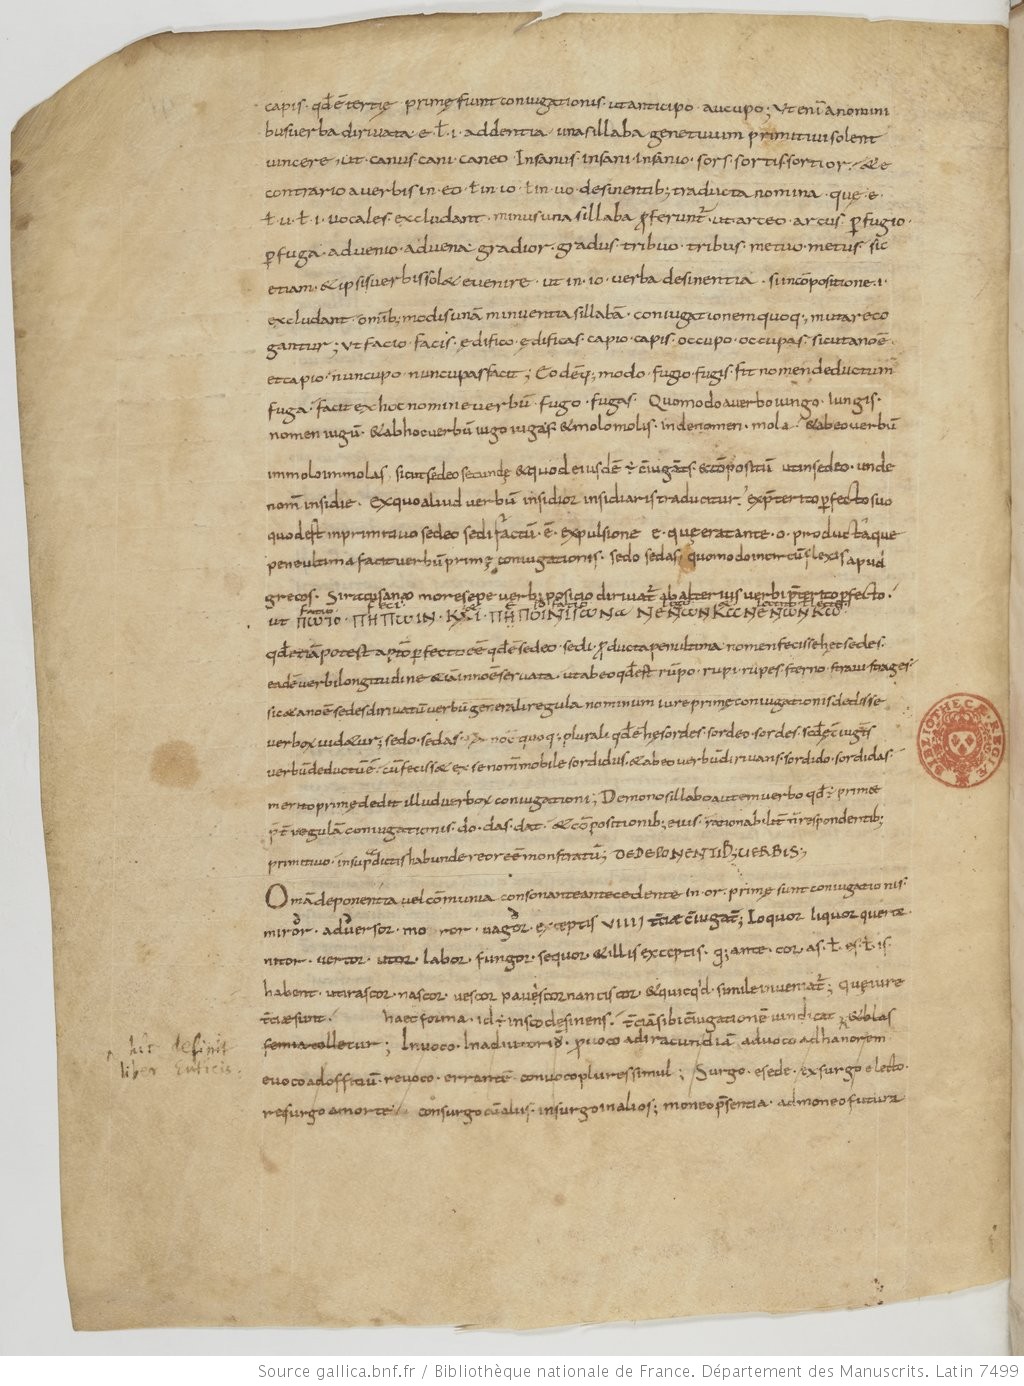 capis · qđ ē tertię primę sunt coniugationis · ut anticipo · aucupo ; Ut enī a nomini
bus uerba diriuata e · ł · i · addentia una sillaba genetiuum primitiui solent
uincere · ut · canus · cani · caneo Insanus insani · insanio · sors · sortis sortior · & e
contrario a uerbis in · eo · ł in · io · ł in · uo · desinentib; traducta nomina · que · e ·
ł · u · ł · i · uocales excludant · minus una sillaba ꝓferunt̄ · ut arceo · arcus · ꝑfugio ·
ꝑfuga · aduenio · aduena · gradior · gradus · tribuo · tribus · metuo · metus · sic
etiam · & ipsis uerbis sol& euenire · ut in · io · uerba desinentia · si in cōpositione · i ·
excludant · omīb; modis unā minuentia sillabā · coniugationem quoq; mutare co
gantur ; Ut facio · facis · edifico · edificas · capio · capis · occupo · occupas · sicut a noē
et capio · nuncupo · nuncupas facit ; Eodēq; modo · fugio · fugis · fit nomen deductum
fuga · facit ex hoc nomine uerbū · fugo · fugas Quomodo a uerbo iungo · iungis ·
nomen iugū · & ab hoc uerbū iugo iugas & molo molis · inde nomen · mola · & ab eo uerbū
immolo immolas sicut sedeo secunde & quod eiusdē · & cōpositū ut insedeo · unde
nom̄ insidie · Ex quo aliud uerbū insidior insidiaris traducitur · p̄terito ꝑfecto suo
quod est in primitiuo sedeo sedi factū · ē · expulsione e · que erat ante · o · producta que
peneultima facit uerbū primę coniugationis · sedo sedas · quomodo in circūflexis apud
grecos · Siracusano more sepe uerbi posicio diriuat̄ ab alterius uerbi p̄terito ꝑfecto ·
facio feci
ut
qđ etiā potest a p̄t̄o ꝑfecto eē qđ ē sedeo · sedi · ꝓducta penultima nomen fecisse hec sedes ·
eadē uerbi longitudine & iā in noē seruata · ut ab eo qđ est rūpo · rupi · rupes · sterno · straui · strages ·
sic & a noē sedes diriuatū uerbū generali regula nominum iure prime coniugationis dedisse
uerbo x uid&ur ; sedo · sedas · noc quoq; plurali qđ ē he sordes · sordeo · sordes ·
uerbū deductū ē · cū feciss& ex se nom̄ mobile sordidus · & ab eo uerbū diriuans · sordido · sordidas ·
merito prime dedit illud uerbo x coniugationi ; De monosillabo autem uerbo
regulā coniugationis · do · das · dat · & cōpositionib; eius · rationabilit̄ respondentib;
primitiuo · in sup̄dictis habunde reor eē monstratū ; DE DEPONENTIB; VERBIS ;
Omā deponentia uel cōmunia consonante antecedente in · or · prime sunt coniugationis ·
miror · aduersor · mo ror · uagor · exceptis VIIII t̄ciæ c̄iugat̄ ; Loquor liquor queror
nitor · uertor · utor · labor · fungor · sequor · & illis exceptis · q; ante · cor · as · ł · es · ł · is ·
habent · ut irascor · nascor · uescor pauescor nanciscor · & quicq'd · simile inueniat̄ ; Que iure
t̄ciæ sunt · haec forma · id in sco desinens · t̄ciā sibi c̄iugationē uindicat · & blas
femia tolletur ; Inuoco · In adiutoriū · prouoco ad iracundiā aduoco ad hanorem
euoco ad officiū · reuoco · errantē · conuoco plures simul ; Surgo · e sede · exsurgo e lecto ·
resurgo a morte · consurgo cū alus · insurgo in alios ; moneo p̄sentia · admoneo futura
hic definit
liber Euticis ·
BIBLIOTHECÆ REGIÆ
Source gallica.bnf.fr / Bibliothèque nationale de France. Département des Manuscrits. Latin 7499